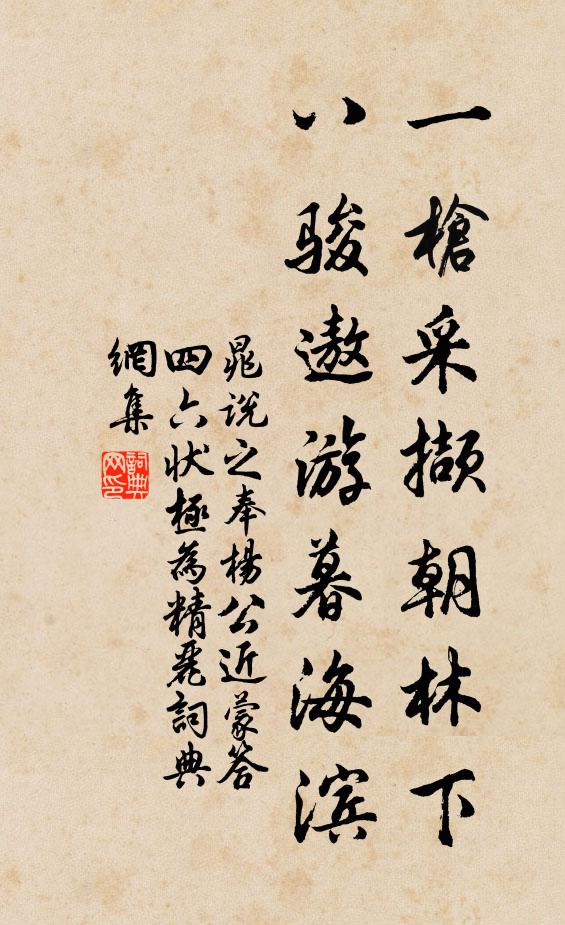 一槍采擷朝林下
八骏遨游暮海滨
晁說之奉楊公近蒙答
四六状極為精麗詞典
網集
詞典网印